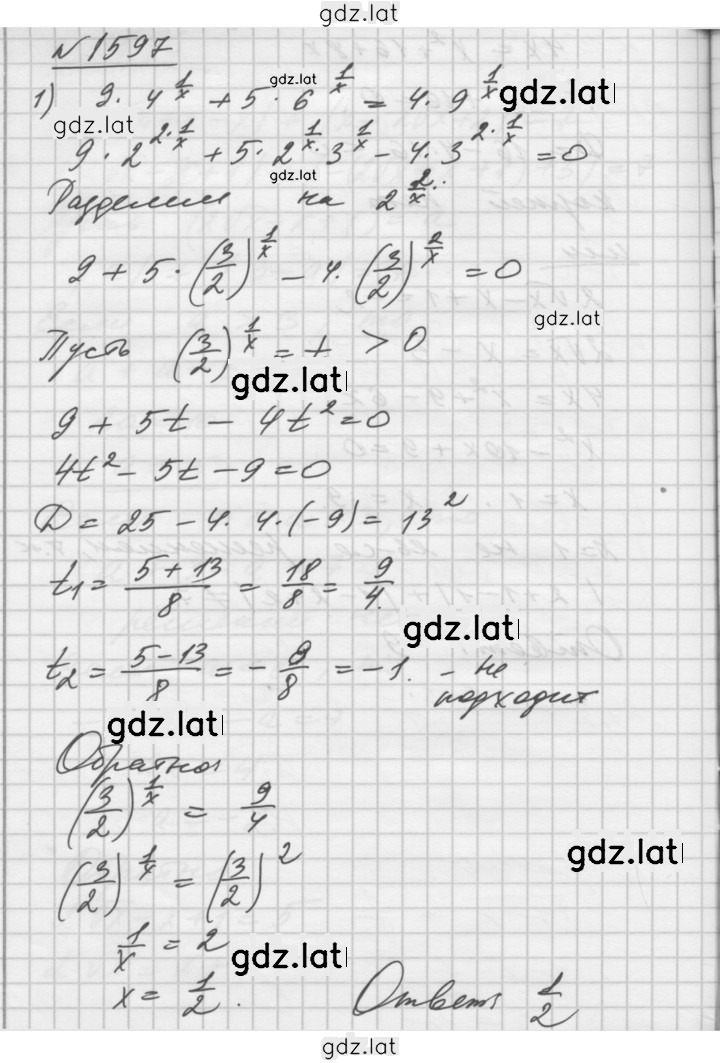 gdz.lat
№1597
1) 9·4^(1/x) + 5·6^(1/x) = 4·9^(1/x)
gdz.lat
gdz.lat
gdz.lat
9·2^(2·1/x) + 5·2^(1/x)·3^(1/x) – 4·3^(2·1/x) = 0
gdz.lat
Разделим на 2^(2/x):
9 + 5·(3/2)^(1/x) – 4·(3/2)^(2/x) = 0
gdz.lat
Пусть (3/2)^(1/x) = t > 0
gdz.lat
9 + 5t – 4t² = 0
4t² – 5t – 9 = 0
D = 25 – 4·4·(–9) = 13²
t₁ = (5+13)/8 = 18/8 = 9/4.
gdz.lat
t₂ = (5–13)/8 = –8/8 = –1. – не
подходит
gdz.lat
Обратно
(3/2)^(1/x) = 9/4
gdz.lat
(3/2)^(1/x) = (3/2)²
1/x = 2
gdz.lat
x = 1/2. Ответ: 1/2
gdz.lat